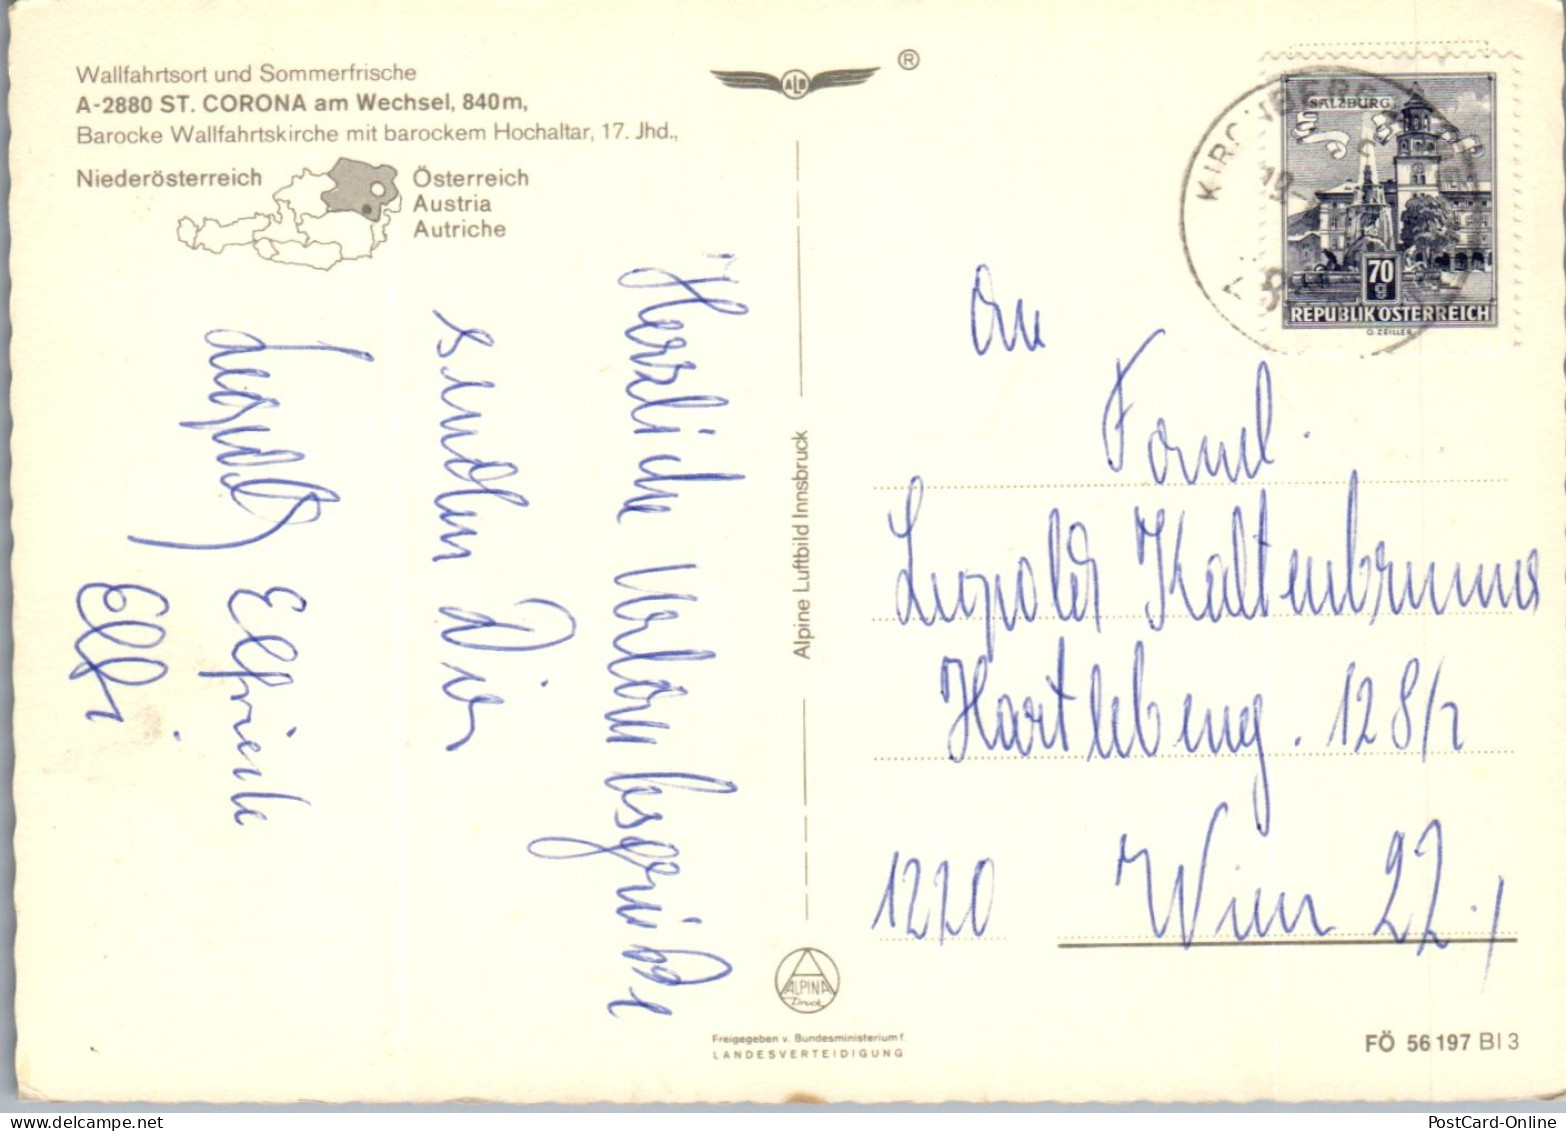 Wallfahrtsort und Sommerfrische
A-2880 ST. CORONA am Wechsel, 840m,
Barocke Wallfahrtskirche mit barockem Hochaltar, 17. Jhd.,
Niederösterreich
Österreich
Austria
Autriche
ALB
®
Herzliche Urlaubsgrüße
senden Dir
Leopold, Elfriede
Elfi
Alpine Luftbild Innsbruck
ALPINA
Druck
Freigegeben v. Bundesministerium f.
LANDESVERTEIDIGUNG
SALZBURG
70
g
REPUBLIK ÖSTERREICH
O. ZEILLER
An
Faml.
Leopold Kaltenbrunner
Hartlebeng. 128/
1220 Wien 22.
FÖ 56 197 BI 3
PostCard-Online